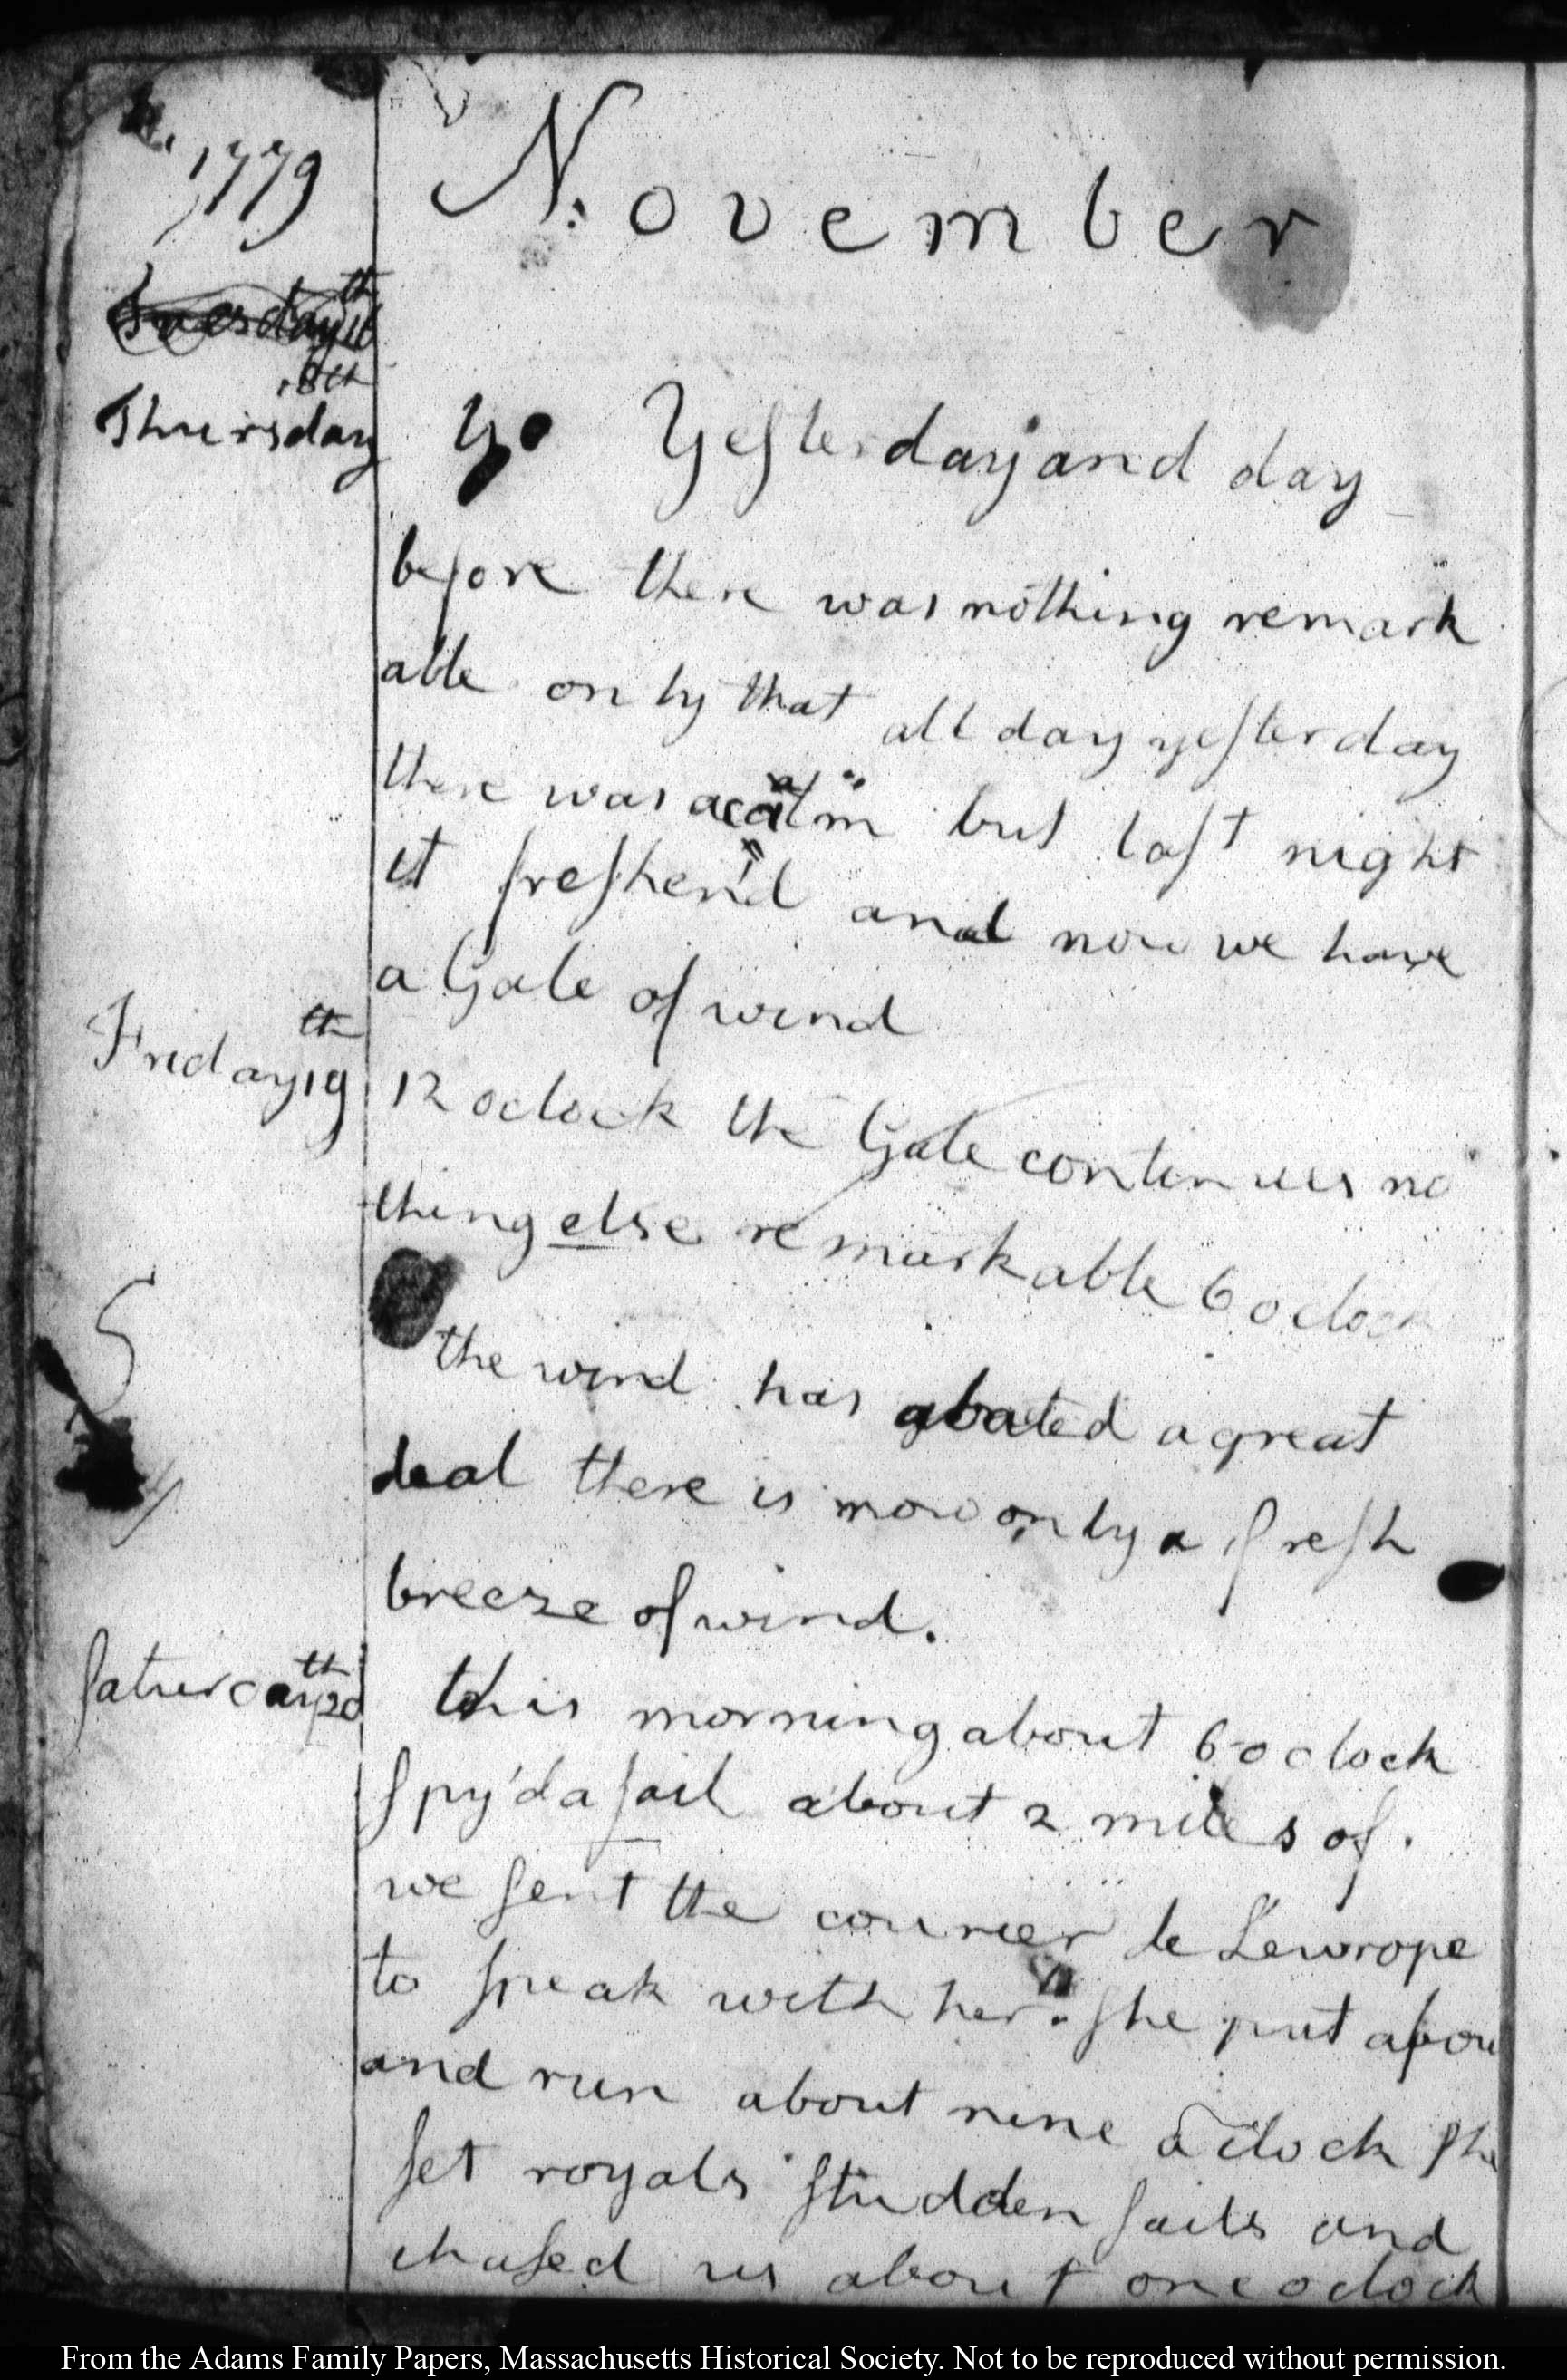 1779
November
Tuesday 16th
18th
Thursday Yesterday and day
before there was nothing remark
able only that all day yesterday
there was a calm but last night
it freshend and now we have
a Gale of wind
Friday 19th 12 oclock the Gale continues no
thing else remarkable 6 oclock
the wind has abated a great
deal there is now only a fresh
breeze of wind.
Saturday 20th this morning about 6 oclock
Spy'd a sail about 2 miles of.
we sent the courier de L'europe
to speak with her. She put abou
and run about nine o'clock she
set royals studden sails and
chased us about one oclock
From the Adams Family Papers, Massachusetts Historical Society. Not to be reproduced without permission.